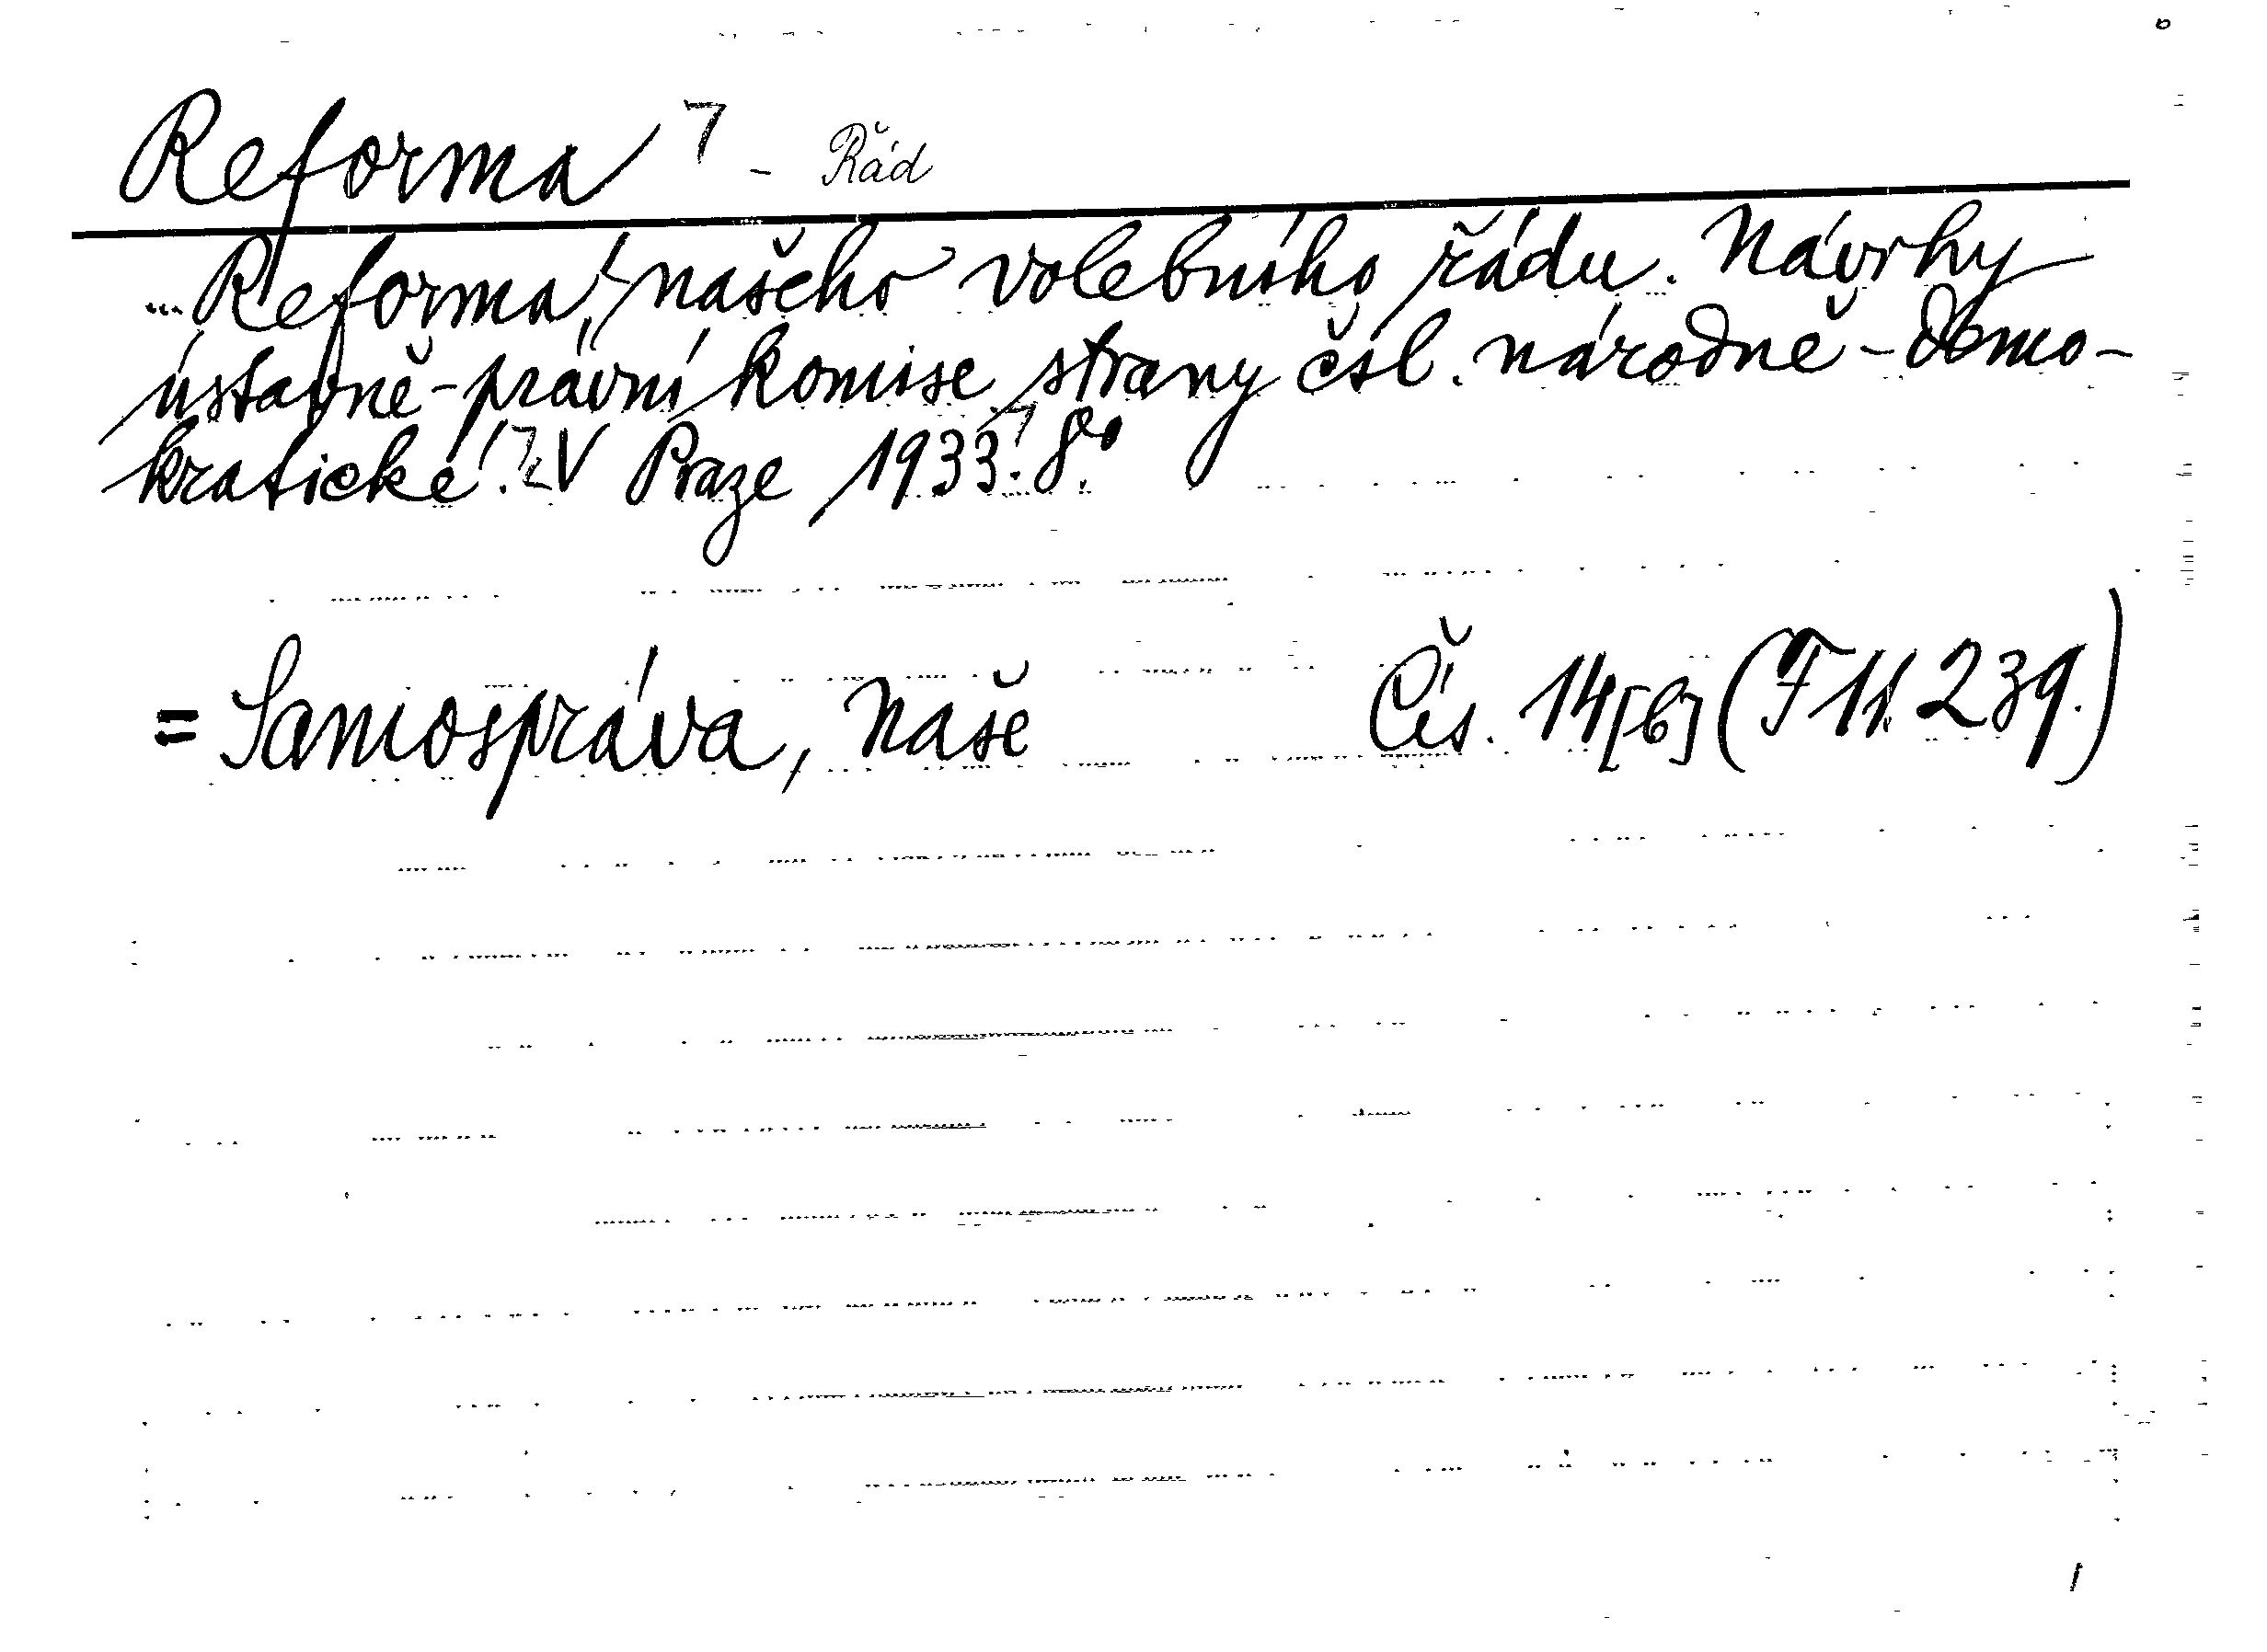 Reforma - Řád
... Reforma našeho volebního řádu. Návrhy
ústavně-právní komise strany čsl. národně-demo-
kratické. V Praze 1933. 8°.
= Samospráva, Naše Čís. 14[b] (F 11. 239.)